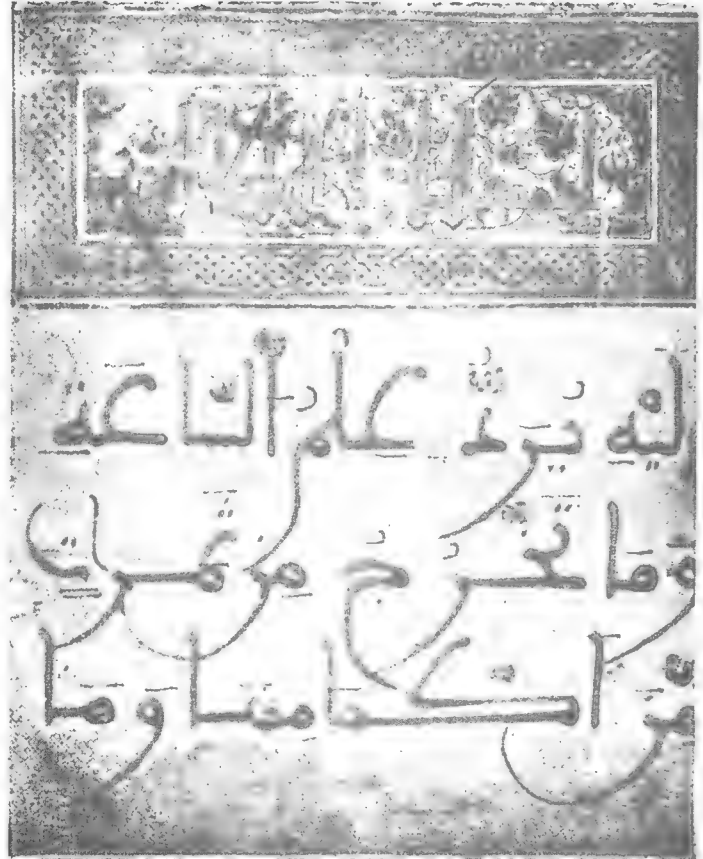 ليه يرد علم الساعة
وما تخرج من ثمرت
من اكمامها وما